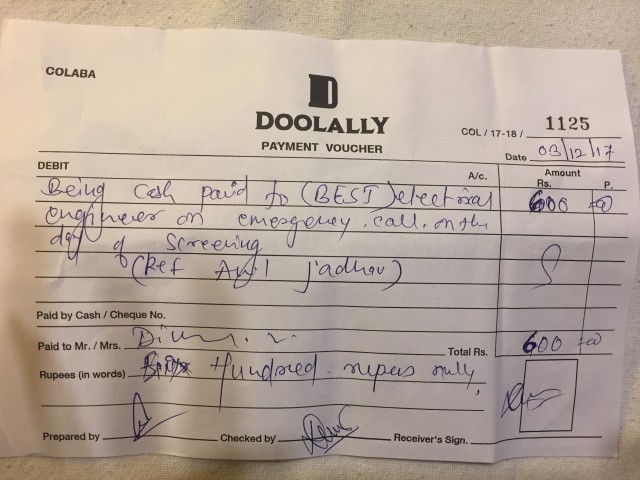 COLABA
D
DOOLALLY
PAYMENT VOUCHER
COL / 17-18 / 1125
Date 03/12/17
DEBIT A/c. Amount
Rs. P.
Being Cash paid to (BEST) electrical 600 00
engineer on emergency call. on the
day of Screening
(Ref Anil Jadhav)
Paid by Cash / Cheque No.
Paid to Mr. / Mrs. Total Rs. 600 00
Rupees (in words) Hundred rupees only,
Prepared by Checked by Receiver's Sign.